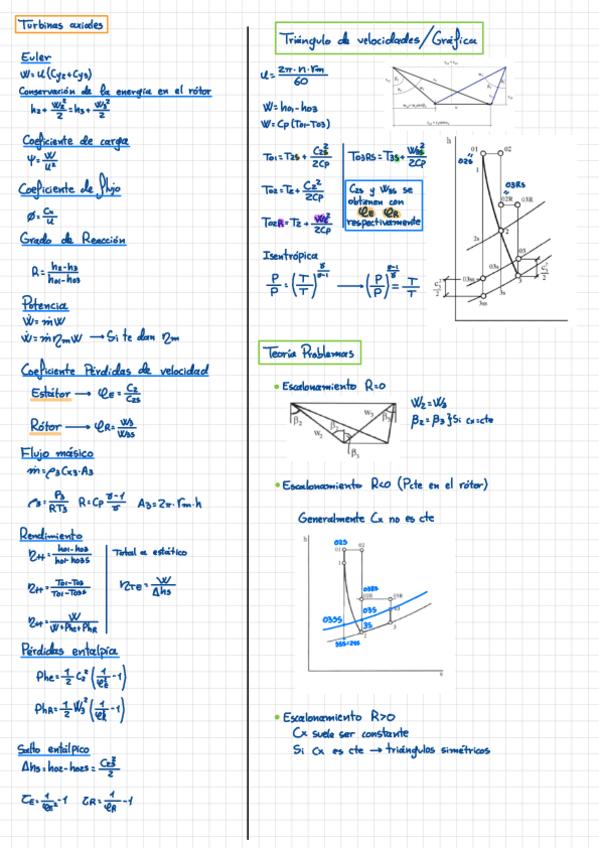 Turbinas axiales
Euler
W=u(Cy2+Cy3)
Conservación de la energía en el rótor
h2+W2²/2=h3+W3²/2
Coeficiente de carga
Ψ=W/u²
Coeficiente de flujo
ø=Cx/u
Grado de Reacción
R=(h2-h3)/(h01-h03)
Potencia
Ẇ=ṁW
Ẇ=ṁηmW → Si te dan ηm
Coeficiente Pérdidas de velocidad
Estátor → φE=C2/C2s
Rótor → φR=W3/W3s
Flujo másico
ṁ=ρ3Cx3·A3
ρ3=P3/RT3 R=Cp (γ-1)/γ A3=2π·rm·h
Rendimiento
ηtt=(h01-h03)/(h01-h03s) Total a estático
ηtt=(T01-T03)/(T01-T03s) ηTE=W/Δhs
ηtt=W/(W+PhE+PhR)
Pérdidas entalpía
PhE=1/2 C2²(1/φE²-1)
PhR=1/2 W3²(1/φR²-1)
Salto entálpico
Δhs=h02-h02s=C2s²/2
ζE=1/φE²-1 ζR=1/φR-1
Triángulo de velocidades/Gráfica
u=2π·n·rm/60
W=h01-h03
W=Cp(T01-T03)
T01=T2s+C2s²/2Cp T03Rs=T3s+W3s²/2Cp
T02=T2+C2²/2Cp
C2s y W3s se
obtienen con
φE φR
respectivamente
T02R=T2+W2²/2Cp
h
01
02
02s
03Rs
02R
03R
1
2
2s
03
03s
03ss
3
3s
3ss
Isentrópica
P/P=(T/T)^γ/γ-1 → (P/P)^γ-1/γ=T/T
Teoría Problemas
Escalonamiento R=0
W2=W3
β2=β3 } Si cx=cte
β2
β3
W2
W3
Escalonamiento R<0 (Pcte en el rótor)
Generalmente Cx no es cte
h
02s
01
02
1
03Rs
02R
03s
03ss
3s
2
3
3ss=2ss
s
Escalonamiento R>0
Cx suele ser constante
Si Cx es cte → triángulos simétricos